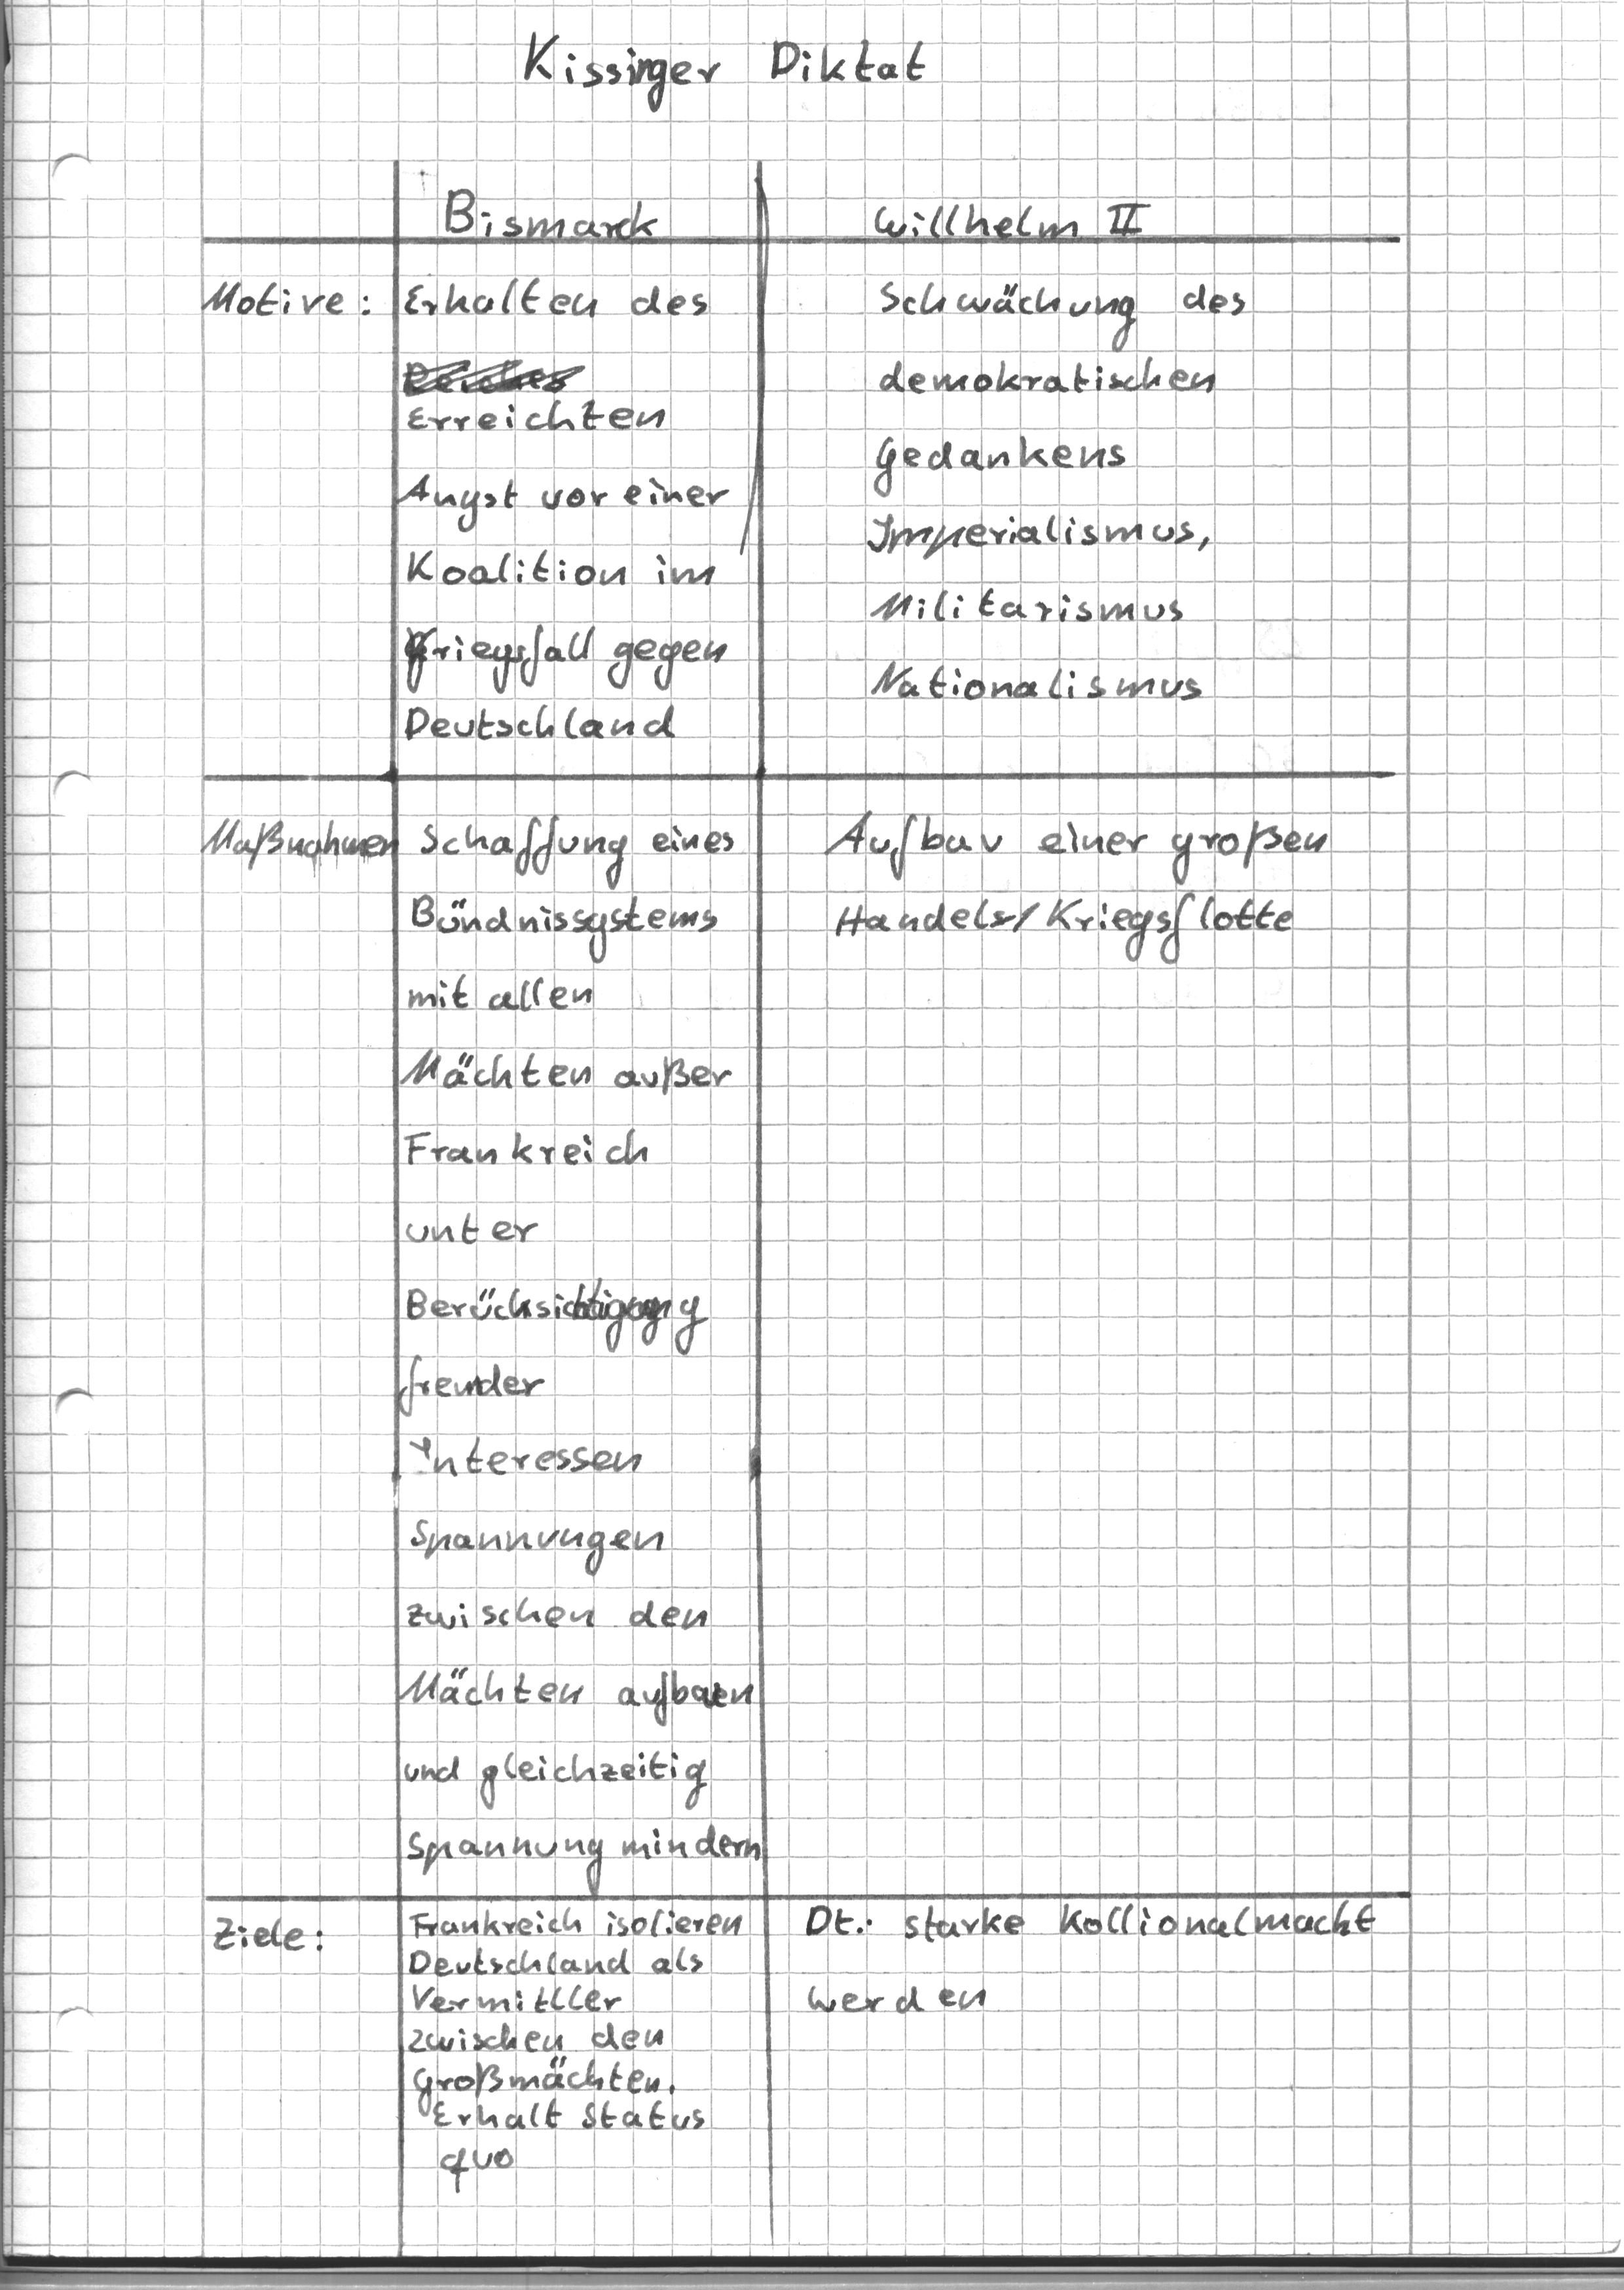 Kissinger Diktat
Bismarck
Willhelm II
Motive:
Erhalten des
Erreichten
Angst vor einer
Koalition im
Kriegsfall gegen
Deutschland
Schwächung des
demokratischen
Gedankens
Imperialismus,
Militarismus
Nationalismus
Maßnahmen
Schaffung eines
Bündnissystems
mit allen
Mächten außer
Frankreich
unter
Berücksichtigung
fremder
Interessen
Spannungen
zwischen den
Mächten aufbauen
und gleichzeitig
Spannung mindern
Aufbau einer großen
Handels/Kriegsflotte
Ziele:
Frankreich isolieren
Deutschland als
Vermittler
zwischen den
Großmächten.
Erhalt Status
quo
Dt.: starke Kollionalmacht
werden